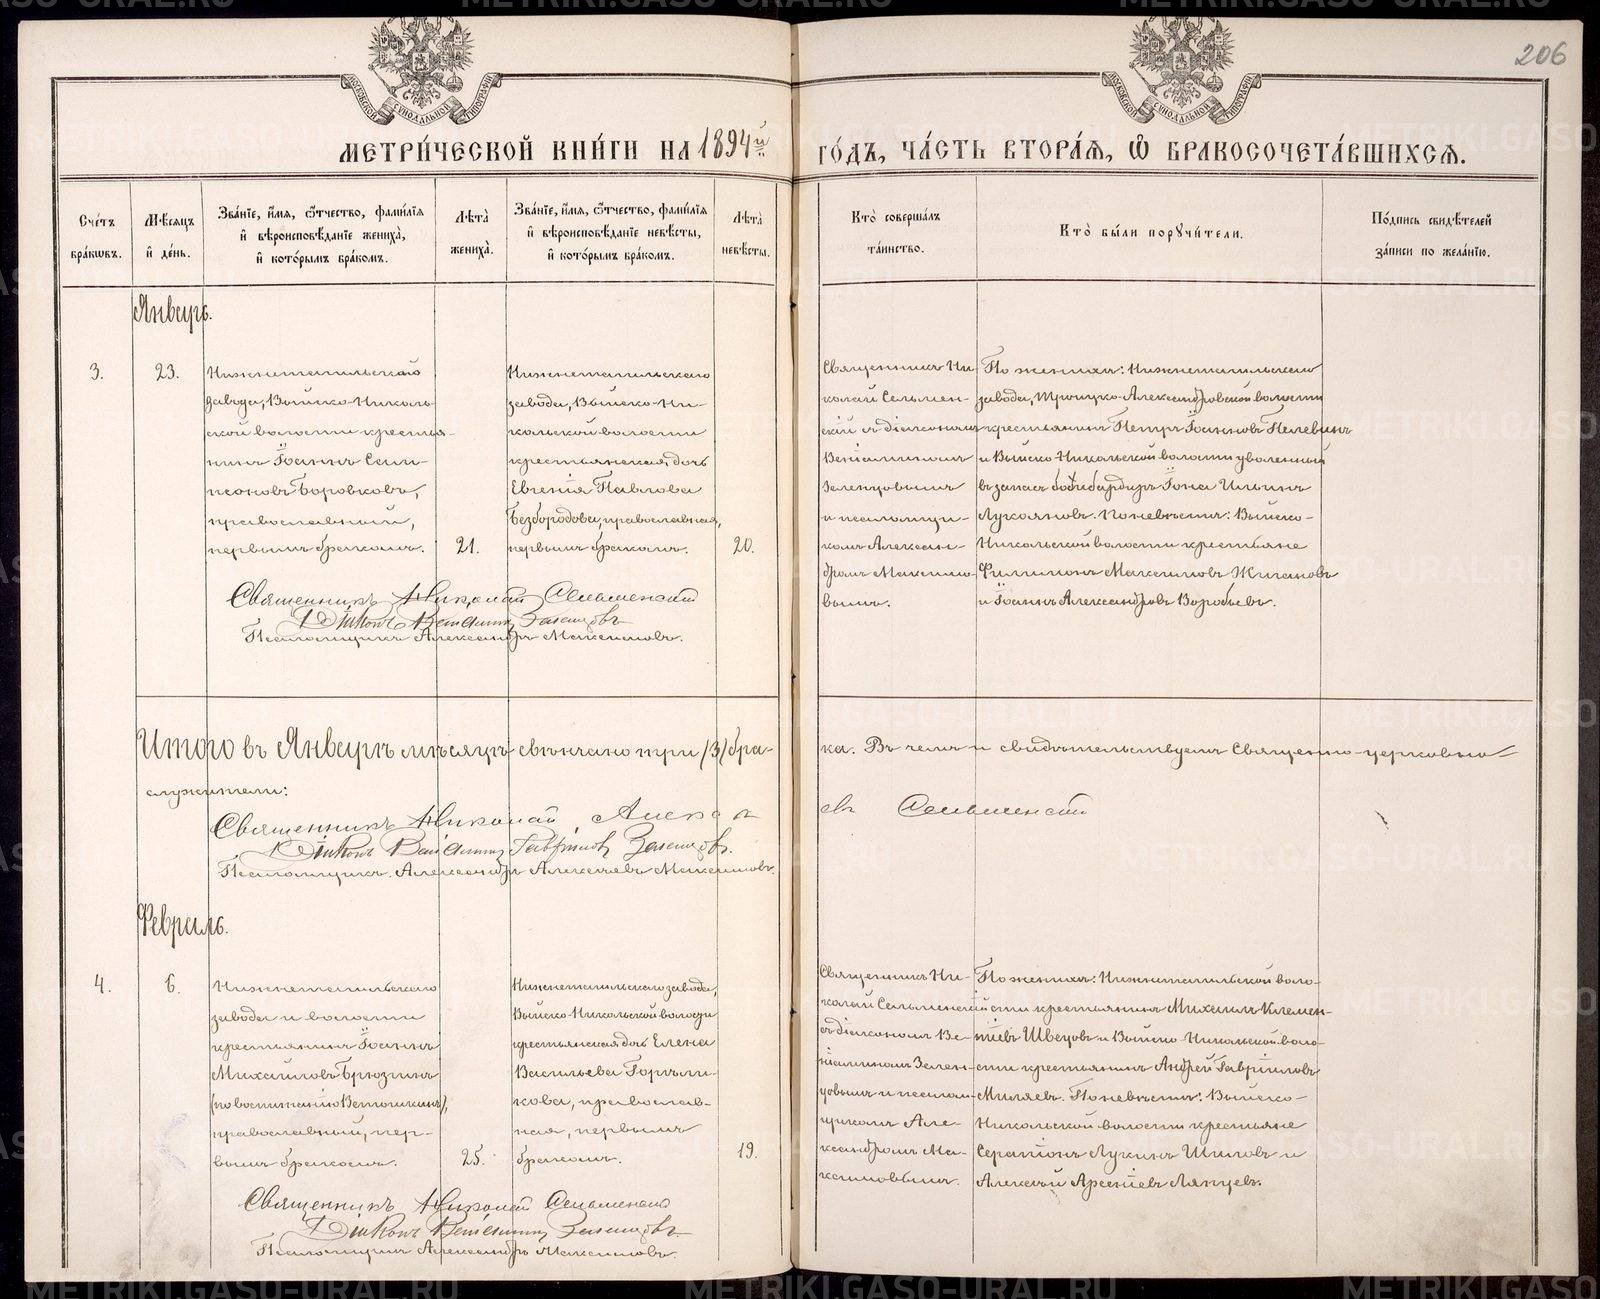 206
МЕТРИ́ЧЕСКОЙ КНИ́ГИ НА 1894й ГО́ДЪ, ЧА́СТЬ ВТОРА́Я, Ѡ БРАКОСОЧЕТА́ВШИХСЯ.
Сче́тъ бра́кѡвъ.
Мѣ́сяцъ и҆ де́нь.
Зва́нїе, и҆́мя, ѻ҆́тчество, фами́лїя и҆ вѣроисповѣ́данїе жениха̀, и҆ кото́рымъ бра́комъ.
Лѣта̀ жениха̀.
Зва́нїе, и҆́мя, ѻ҆́тчество, фами́лїя и҆ вѣроисповѣ́данїе невѣ́сты, и҆ кото́рымъ бра́комъ.
Лѣта̀ невѣ́сты.
Кто̀ соверша́лъ та́инство.
Кто̀ бы́ли пору́чители.
По́дпись свидѣ́телей за́писи по жела́нїю.
Январь.
3.
23.
Нижнетагильскаго
завода, Выйско-Николь-
ской волости крестья-
нинъ Іоаннъ Сам-
псоновъ Боровковъ,
православный,
первымъ бракомъ.
21.
Нижнетагильскаго
завода, Выйско-Ни-
кольской волости
крестьянская дочь
Евгенія Павлова
Безбородова, православная,
первымъ бракомъ.
20.
Священникъ Ни-
колай Сельмен-
скій съ діакономъ
Веніаминомъ
Зеленцовымъ
и псаломщи-
комъ Алексан-
дромъ Максимо-
вымъ.
По женихѣ: Нижнетагильскаго
завода, Троицко-Александровской волости
крестьянинъ Петръ Іоанновъ Пелевинъ
и Выйско-Никольской волости уволенный
въ запасъ бомбардиръ Іона Ильинъ
Лукояновъ. По невѣстѣ: Выйско-
Никольской волости крестьяне
Филимонъ Максимовъ Жигановъ
и Іоаннъ Александровъ Воробьевъ.
Священникъ Николай Сельменскій
Діаконъ Веніаминъ Зеленцовъ
Псаломщикъ Александръ Максимовъ.
Итого въ Январѣ мѣсяцѣ свѣнчано три /3/ бра-
ка. Въ чемъ и свидѣтельствуемъ Священно-церковно-
служители:
Священникъ Николай Алекс
евъ Сельменскій
Діаконъ Веніаминъ Гавріиловъ Зеленцовъ.
Псаломщикъ Александръ Алексѣевъ Максимовъ.
Февраль.
4.
6.
Нижнетагильскаго
завода и волости
крестьянинъ Іоаннъ
Михаиловъ Брюзгинъ
(по воспитанію Ветошкинъ),
православный, пер-
вымъ бракомъ.
25.
Нижнетагильскаго завода,
Выйско-Никольской волости
крестьянская дочь Елена
Васильева Горѣли-
кова, православ-
ная, первымъ
бракомъ.
19.
Священникъ Ни-
колай Сельменскій
съ діакономъ Ве-
ніаминомъ Зелен-
цовымъ и псалом-
щикомъ Але-
ксандромъ Ма-
ксимовымъ.
По женихѣ: Нижнетагильской воло-
сти крестьянинъ Михаилъ Климен-
тіевъ Швецовъ и Выйско-Никольской воло-
сти крестьянинъ Андрей Гавріиловъ
Миляевъ. По невѣстѣ: Выйско-
Никольской волости крестьяне
Серапіонъ Лукинъ Шиловъ и
Алексѣй Арсеніевъ Ляпцевъ.
Священникъ Николай Сельменскій
Діаконъ Веніаминъ Зеленцовъ.
Псаломщикъ Александръ Максимовъ.
METRIKI.GASO-URAL.RU